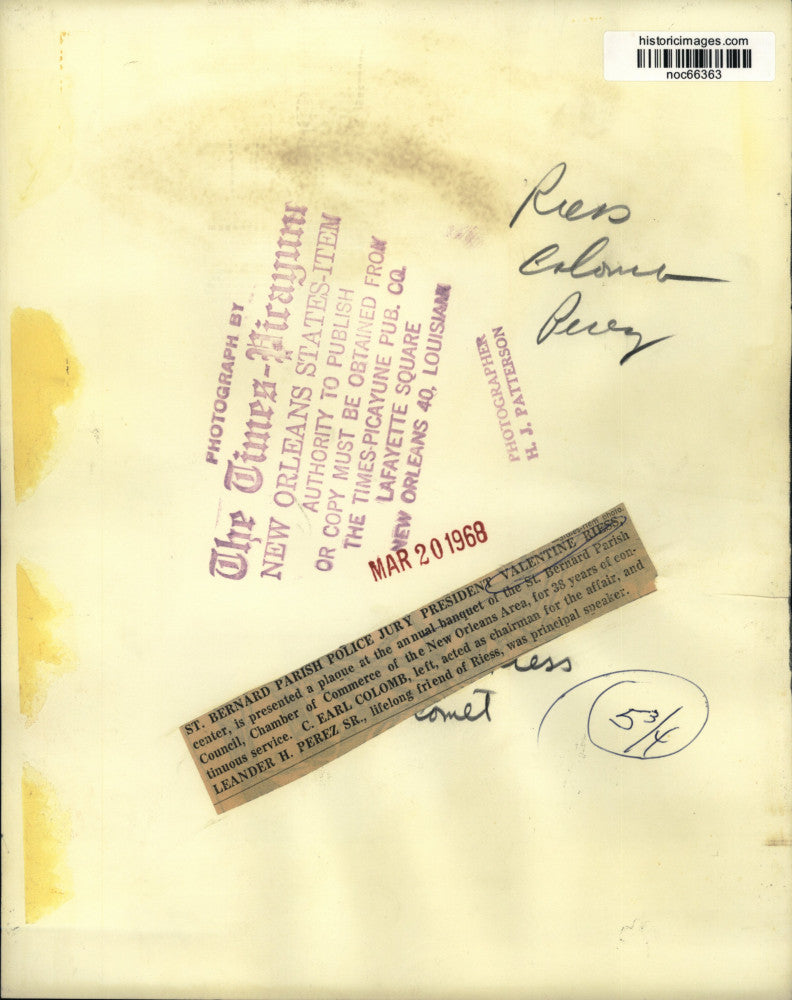 historicimages.com
noc66363
Riess
Colomb
Perez
PHOTOGRAPH BY
The Times-Picayune
NEW ORLEANS STATES-ITEM
AUTHORITY TO PUBLISH
OR COPY MUST BE OBTAINED FROM
THE TIMES-PICAYUNE PUB. CO.
LAFAYETTE SQUARE
NEW ORLEANS 40, LOUISIANA
PHOTOGRAPHER
H. J. PATTERSON
MAR 20 1968
photo.
ST. BERNARD PARISH POLICE JURY PRESIDENT VALENTINE RIESS,
center, is presented a plaque at the annual banquet of the St. Bernard Parish
Council, Chamber of Commerce of the New Orleans Area, for 38 years of con-
tinuous service. C. EARL COLOMB, left, acted as chairman for the affair, and
LEANDER H. PEREZ SR., lifelong friend of Riess, was principal speaker.
5 3/4